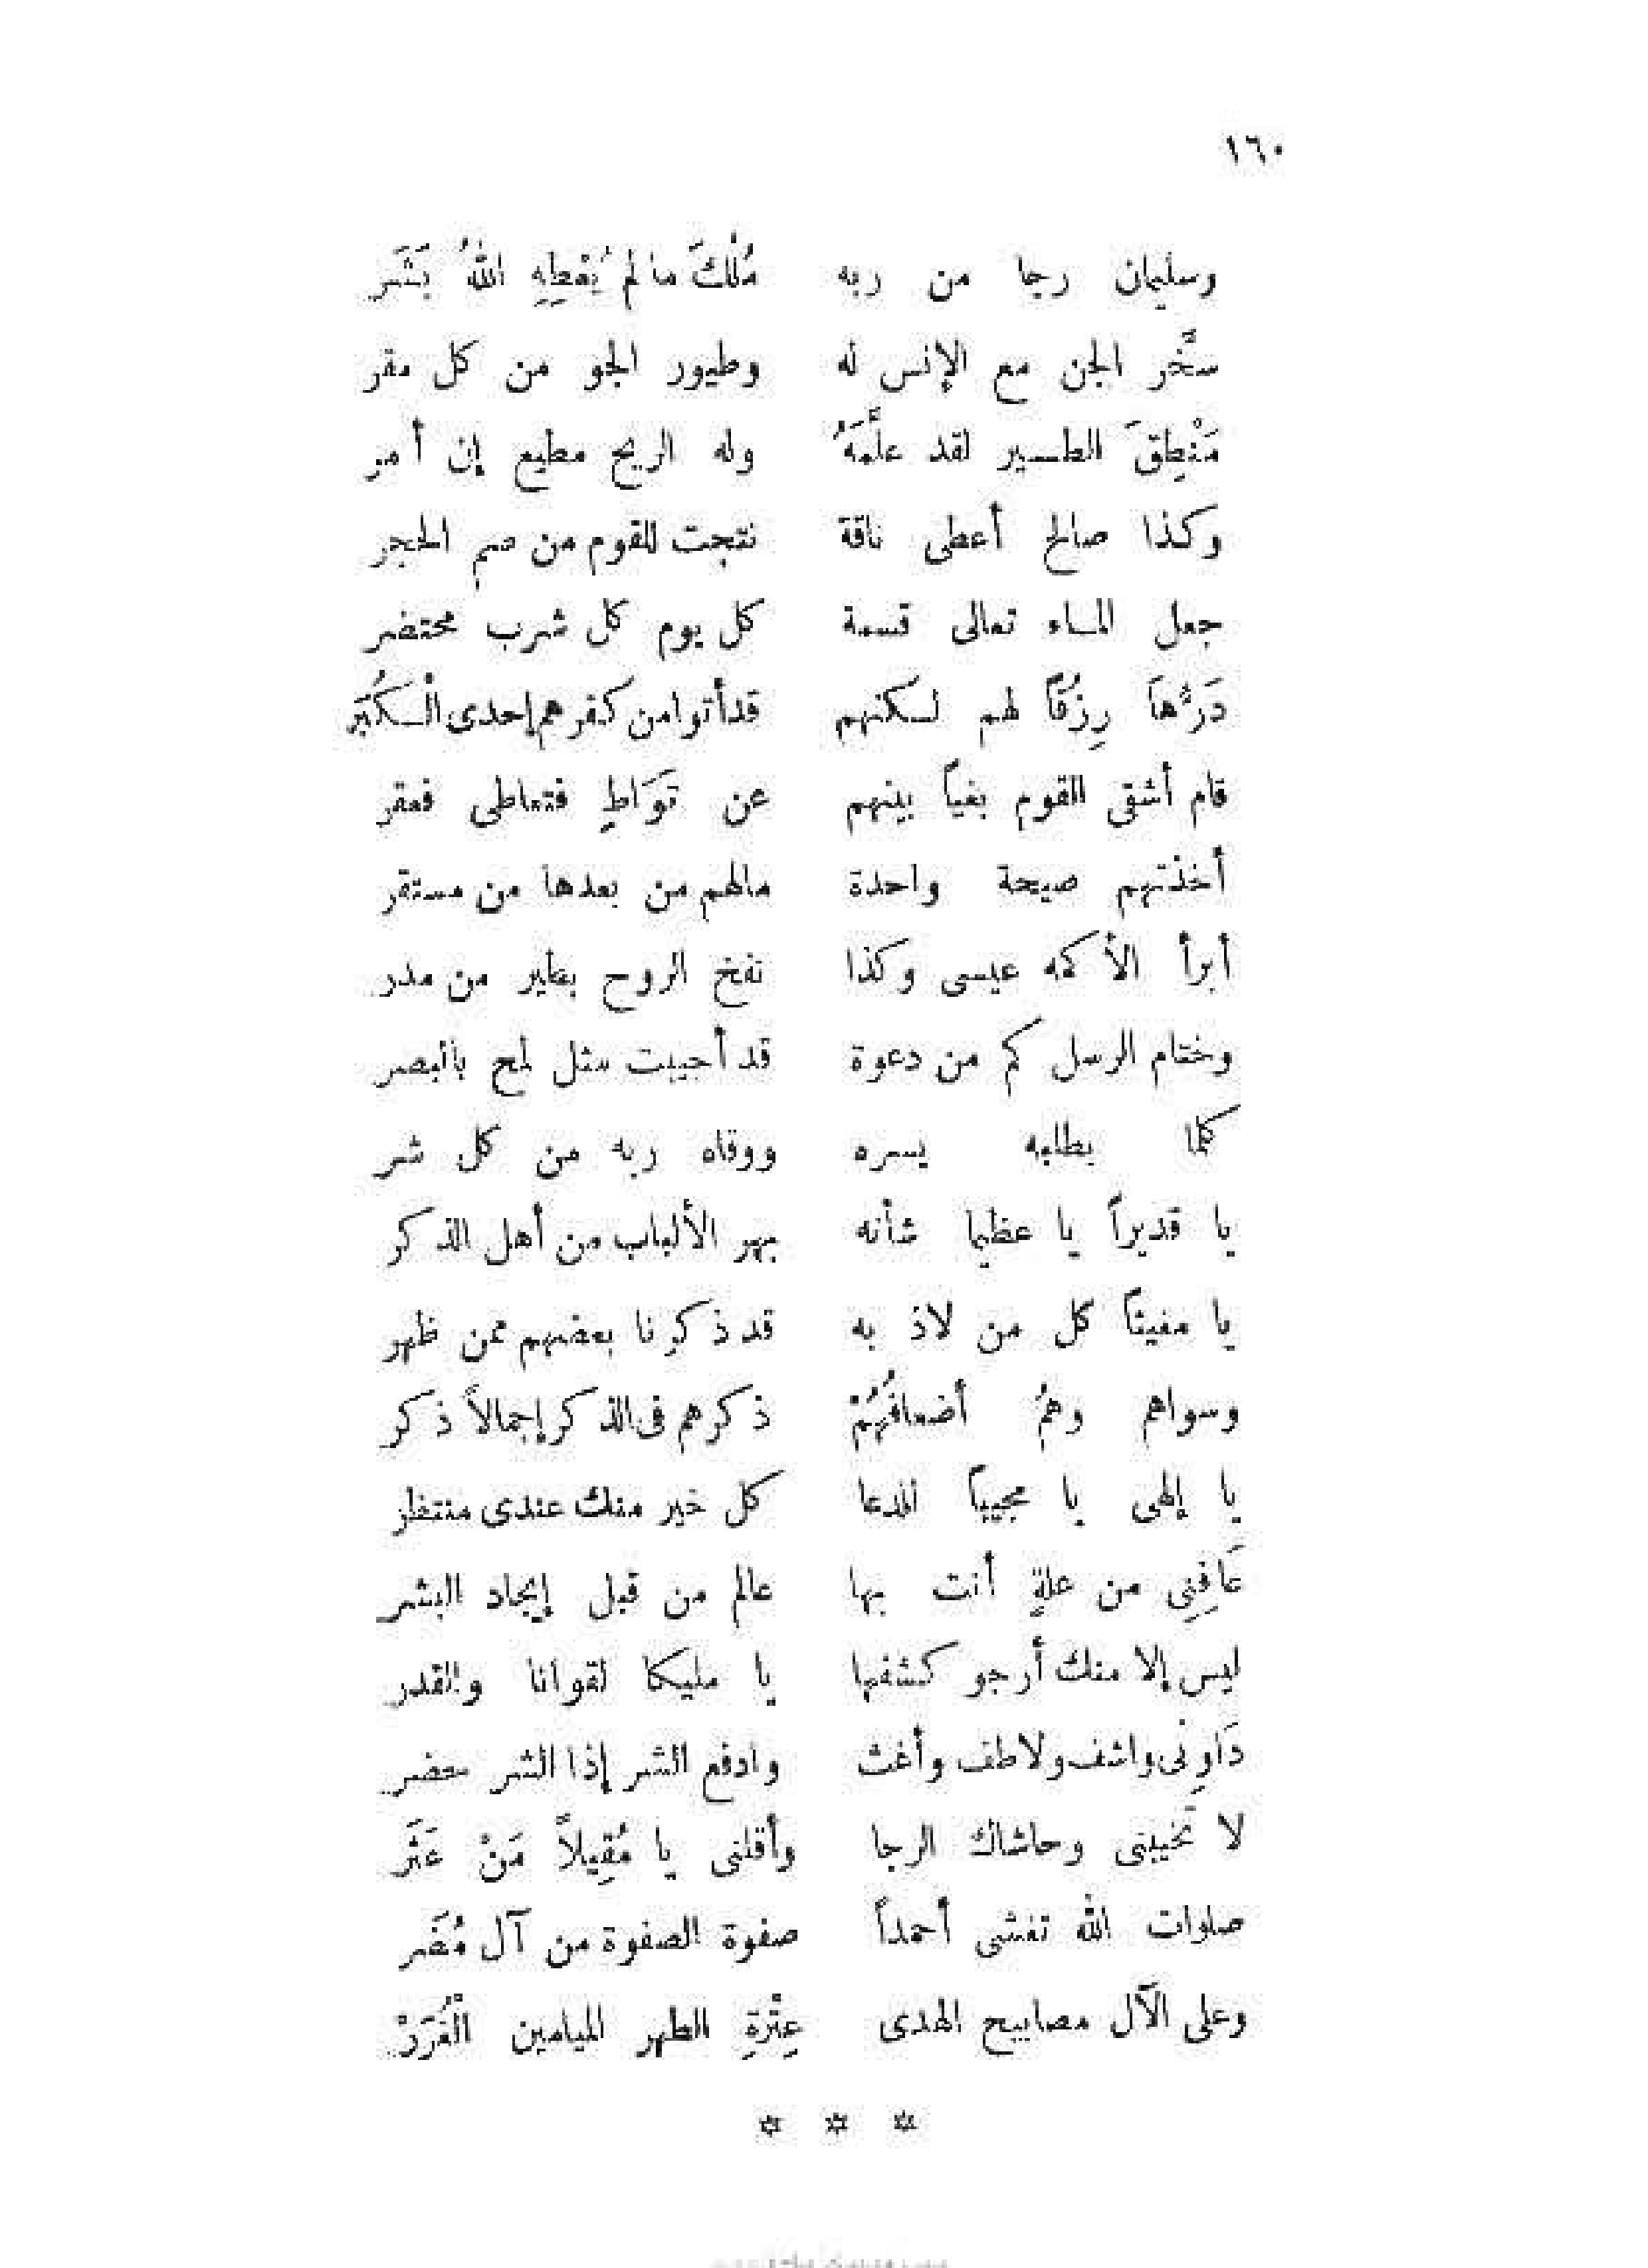 ١٦٠
وسليمان رجا من ربه مُلْكَ ما لم يُعْطِهِ اللهُ بَشَر
سخَّر الجن مع الإنس له وطيور الجو من كل مقر
مَنْطِقَ الطير لقد علَّمَهُ وله الريح مطيع إن أمر
وكذا صالح أعطى ناقة نتجت للقوم من صم الحجر
جعل الماء تعالى قسمة كل يوم كل شرب محتضر
دَرُّهَا رِزْقاً لهم لكنهم قد أتوا من كفرهم إحدى الْكُبَر
قام أشقى القوم بغياً بينهم عن تَوَاطٍ فتعاطى فعقر
أخذتهم صيحة واحدة مالهم من بعدها من مستقر
أبرأ الأكمه عيسى وكذا نفخ الروح بطير من مدر
وختام الرسل كم من دعوة قد أجيبت مثل لمح بالبصر
كلما يطلبه يسره ووقاه ربه من كل شر
يا قديراً يا عظيما شأنه بهر الألباب من أهل الذكر
يا مغيثاً كل من لاذ به قد ذكرنا بعضهم ممن ظهر
وسواهم وهمُ أضعافُهُمْ ذكرهم فى الذكر إجمالاً ذكر
يا إلهى يا مجيباً للدعا كل خير منك عندى منتظر
عَافِنِى من علةٍ أنت بها عالم من قبل إيجاد البشر
ليس إلا منك أرجو كشفها يا مليكا لقوانا والقدر
دَاوِنى واشف ولاطف وأغث وادفع الشر إذا الشر حضر
لا تخيبنى وحاشاك الرجا وأقلنى يا مُقِيلاً مَنْ عَثَر
صلوات الله تغشى أحمداً صفوة الصفوة من آل مُضَر
وعلى الآل مصابيح الهدى عِتْرةِ الطهر الميامين الْغُرَرْ
* * *